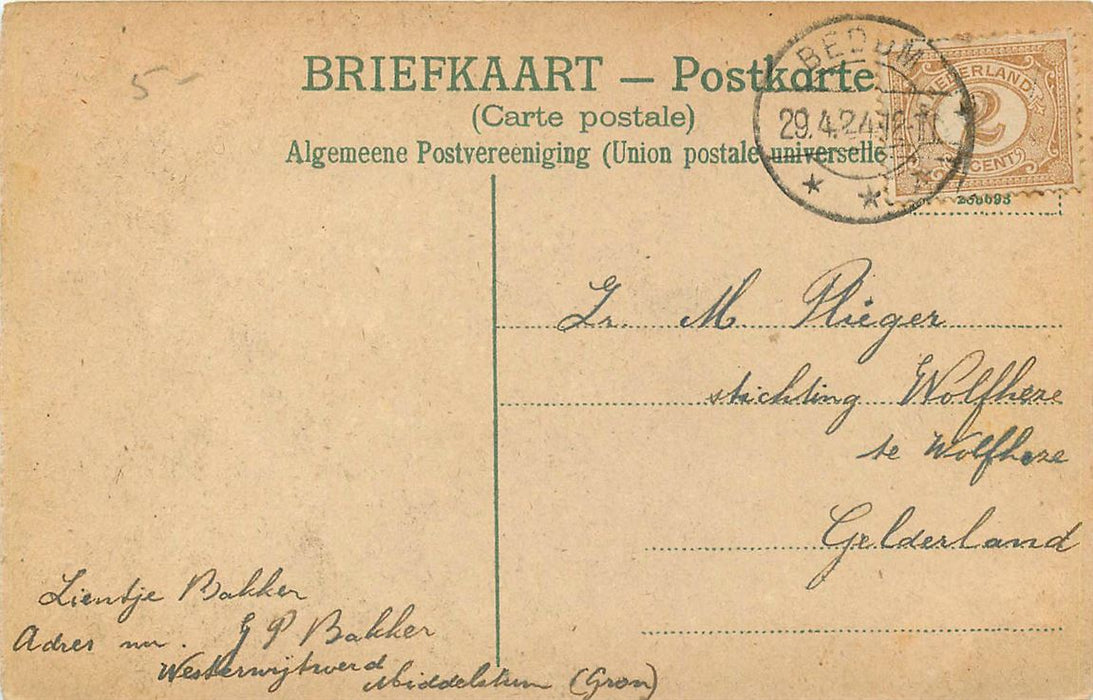 5-
BRIEFKAART — Postkarte
(Carte postale)
Algemeene Postvereeniging (Union postale universelle
BEDUM
29.4.24
NEDERLAND
2
CENT
M Plieger
stichting Wolfheze
te Wolfheze
Gelderland
Lientje Bakker
Adres G P Bakker
Westerwijtwerd
Middelstum (Gron)